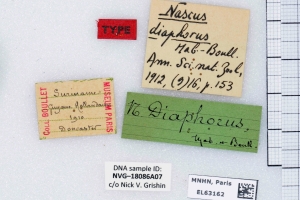 TYPE
Nascus
diaphorus
Mab. Boull.
Ann. Sci. nat. Zool.
1912, (9) 16, p. 153
COLL BOULLET
Suriname
1910
MUSEUM PARIS
N. Diaphorus,
Mab. & Boull.
DNA sample ID:
NVG-18086A07
c/o Nick V. Grishin
MNHN, Paris
EL63162